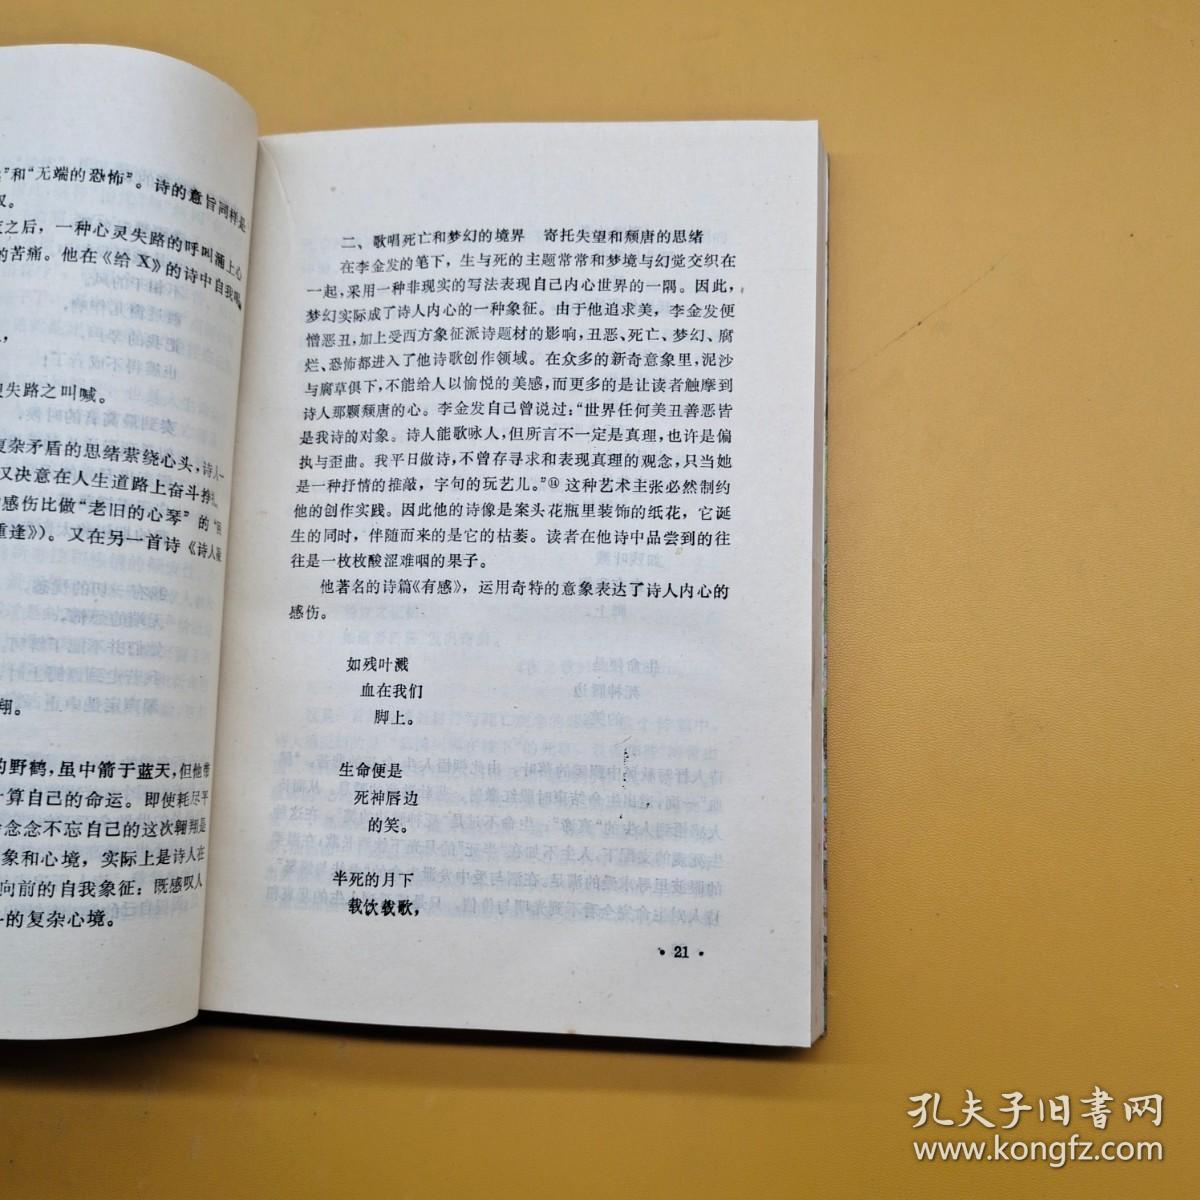 ”和“无端的恐怖”。诗的意旨同样是
之后，一种心灵失路的呼叫涌上心
的苦痛。他在《给X》的诗中自我喝
失路之叫喊。
复杂矛盾的思绪萦绕心头，诗人一
又决意在人生道路上奋斗挣扎
感伤比做“老旧的心琴”的“
重逢》）。又在另一首诗《诗人凝
翔。
的野鹤，虽中箭于蓝天，但他带
算自己的命运。即使耗尽平
念念不忘自己的这次翱翔是
象和心境，实际上是诗人在
向前的自我象征：既感叹人
的复杂心境。
二、歌唱死亡和梦幻的境界　寄托失望和颓唐的思绪
在李金发的笔下，生与死的主题常常和梦境与幻觉交织在
一起，采用一种非现实的写法表现自己内心世界的一隅。因此，
梦幻实际成了诗人内心的一种象征。由于他追求美，李金发便
憎恶丑，加上受西方象征派诗题材的影响，丑恶、死亡、梦幻、腐
烂、恐怖都进入了他诗歌创作领域。在众多的新奇意象里，泥沙
与腐草俱下，不能给人以愉悦的美感，而更多的是让读者触摩到
诗人那颗颓唐的心。李金发自己曾说过：“世界任何美丑善恶皆
是我诗的对象。诗人能歌咏人，但所言不一定是真理，也许是偏
执与歪曲。我平日做诗，不曾存寻求和表现真理的观念，只当她
是一种抒情的推敲，字句的玩艺儿。”⑭这种艺术主张必然制约
他的创作实践。因此他的诗像是案头花瓶里装饰的纸花，它诞
生的同时，伴随而来的是它的枯萎。读者在他诗中品尝到的往
往是一枚枚酸涩难咽的果子。
他著名的诗篇《有感》，运用奇特的意象表达了诗人内心的
感伤。
如残叶溅
血在我们
脚上。
生命便是
死神唇边
的笑。
半死的月下
载饮载歌，
• 21 •
孔夫子旧书网
www.kongfz.com